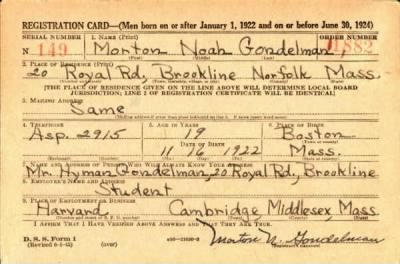 REGISTRATION CARD—(Men born on or after January 1, 1922 and on or before June 30, 1924)
SERIAL NUMBER 1. NAME (Print) ORDER NUMBER
N 149 Morton Noah Gondelman 11,882
(First) (Middle) (Last)
2. PLACE OF RESIDENCE (Print)
20 Royal Rd, Brookline Norfolk Mass.
(Number and street) (Town, township, village, or city) (County) (State)
[THE PLACE OF RESIDENCE GIVEN ON THE LINE ABOVE WILL DETERMINE LOCAL BOARD
JURISDICTION; LINE 2 OF REGISTRATION CERTIFICATE WILL BE IDENTICAL]
3. MAILING ADDRESS
Same
4. TELEPHONE 5. AGE IN YEARS 6. PLACE OF BIRTH
Asp. 2915 19 Boston
DATE OF BIRTH
11 16 1922 Mass.
(Exchange) (Number) (Mo.) (Day) (Yr.)
7. NAME AND ADDRESS OF PERSON WHO WILL ALWAYS KNOW YOUR ADDRESS
Mr. Hyman Gondelman, 20 Royal Rd., Brookline
8. EMPLOYER'S NAME AND ADDRESS
Student
9. PLACE OF EMPLOYMENT OR BUSINESS
Harvard Cambridge, Middlesex, Mass
(Number and street or R. F. D. number) (Town) (County) (State)
I AFFIRM THAT I HAVE VERIFIED ABOVE ANSWERS AND THAT THEY ARE TRUE.
D. S. S. Form 1 (over) Morton N. Gondelman